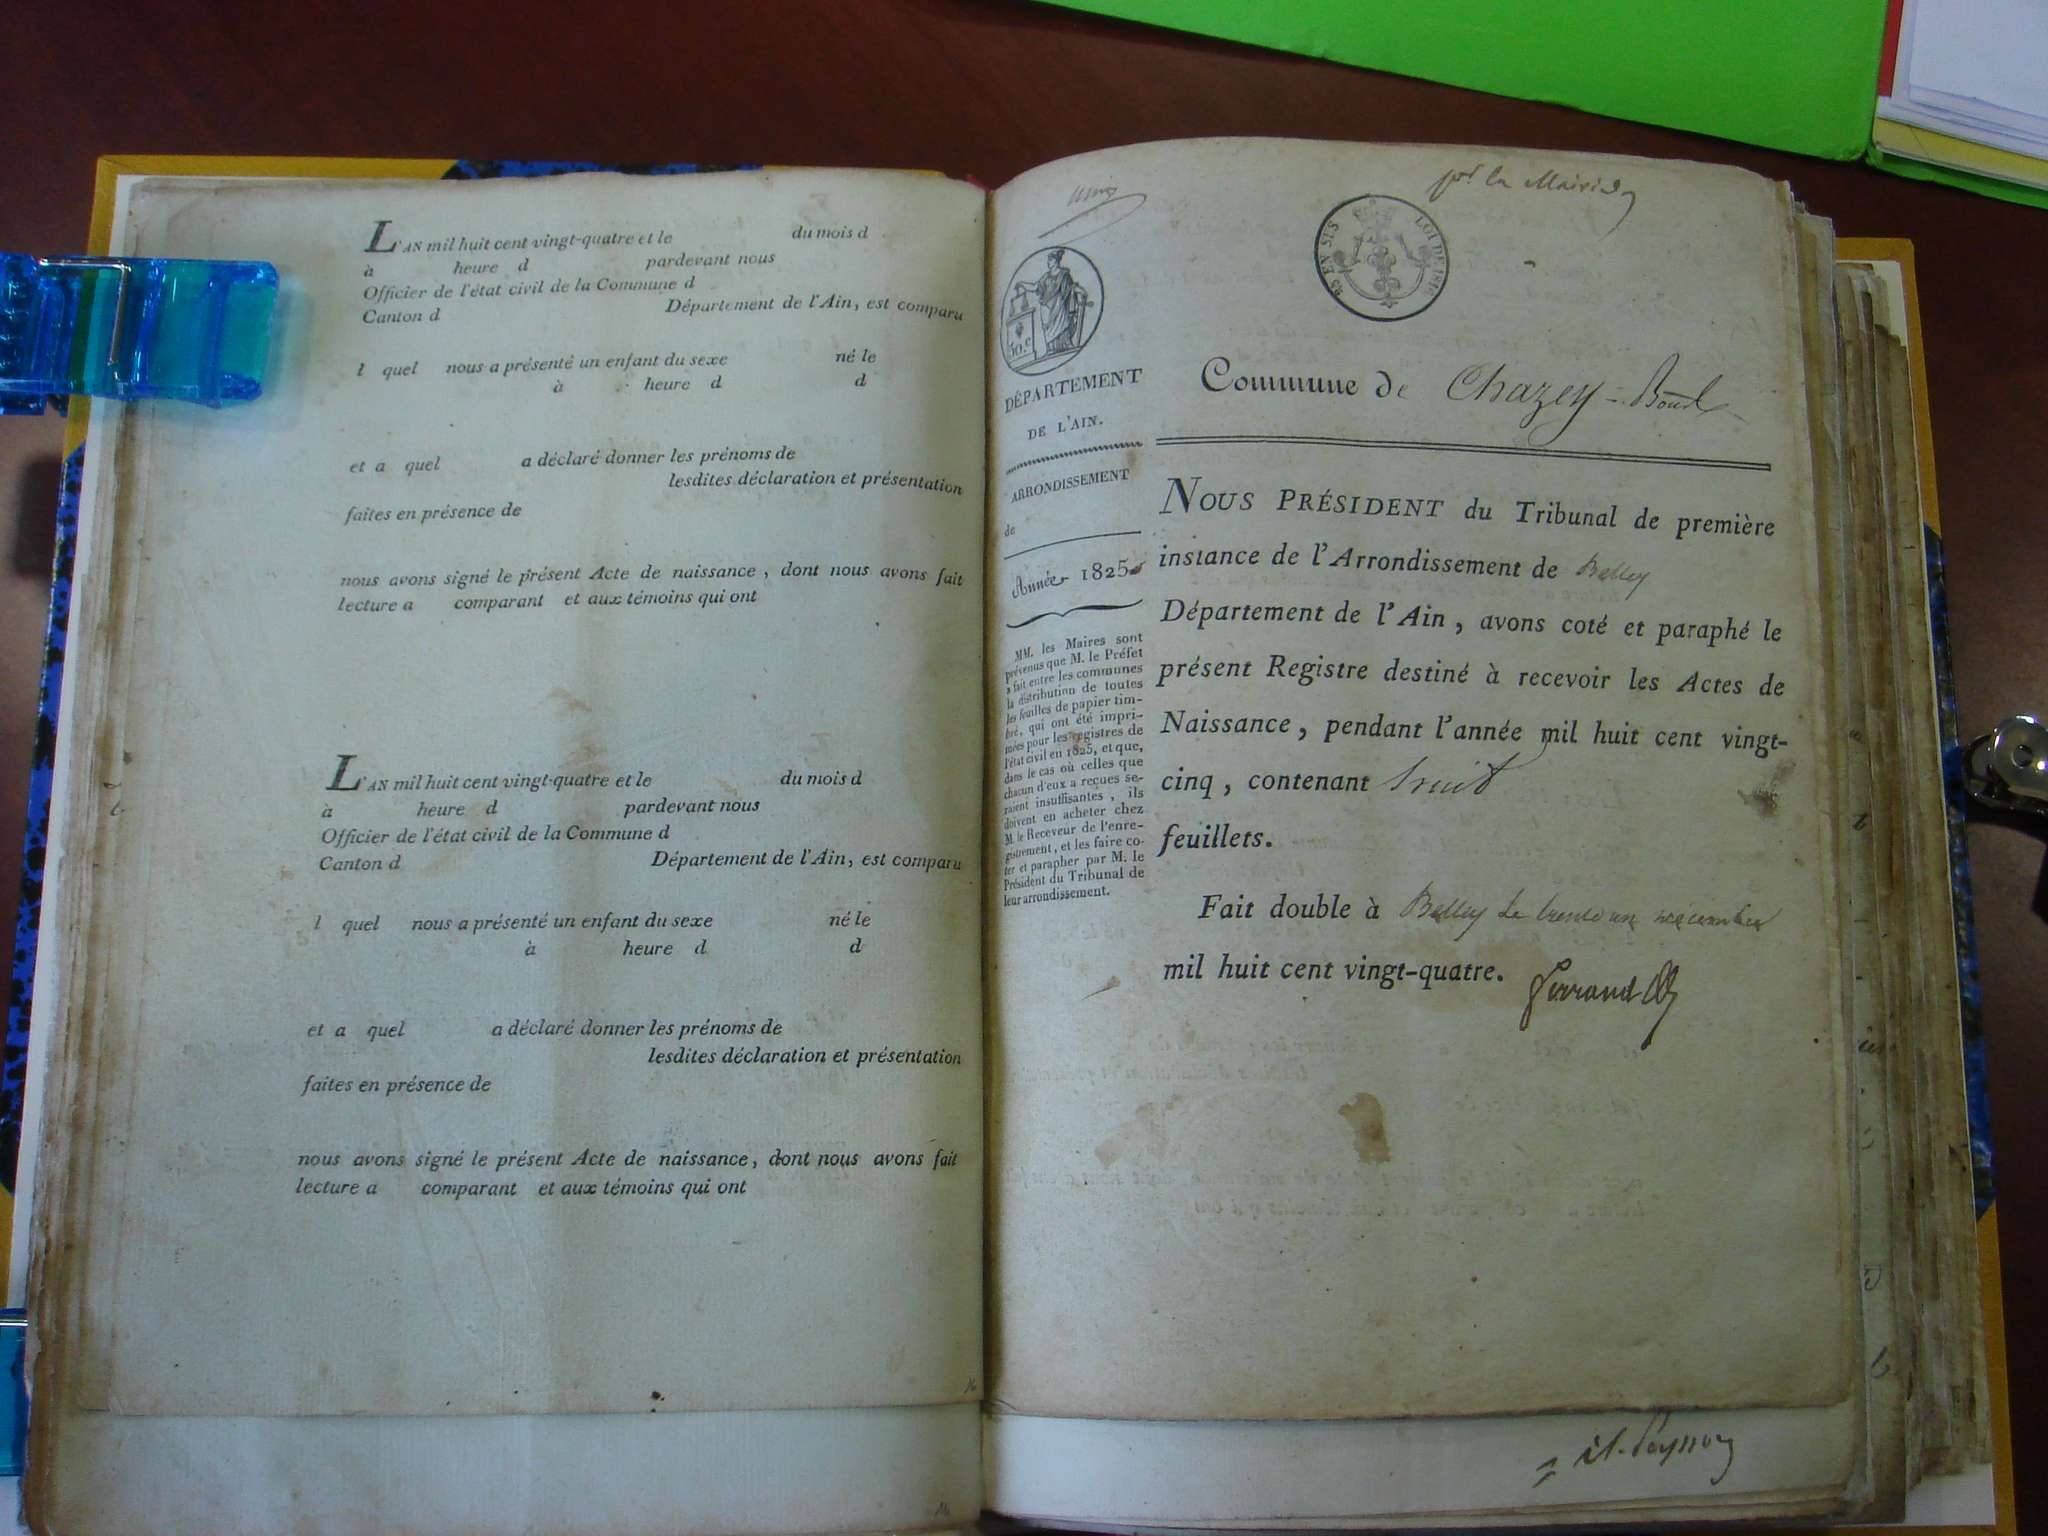 L'AN mil huit cent vingt-quatre et le du mois d
à heure d pardevant nous
Officier de l'état civil de la Commune d
Canton d Département de l'Ain, est comparu
l quel nous a présenté un enfant du sexe né le
à heure d d
et a quel a déclaré donner les prénoms de
lesdites déclaration et présentation
faites en présence de
nous avons signé le présent Acte de naissance, dont nous avons fait
lecture a comparant et aux témoins qui ont
L'AN mil huit cent vingt-quatre et le du mois d
à heure d pardevant nous
Officier de l'état civil de la Commune d
Canton d Département de l'Ain, est comparu
l quel nous a présenté un enfant du sexe né le
à heure d d
et a quel a déclaré donner les prénoms de
lesdites déclaration et présentation
faites en présence de
nous avons signé le présent Acte de naissance, dont nous avons fait
lecture a comparant et aux témoins qui ont
pr la Mairie
LOI DE 1816
50.c
DÉPARTEMENT
DE L'AIN.
ARRONDISSEMENT
de
Année 1825.
MM. les Maires sont
prévenus que M. le Préfet
a fait entre les communes
la distribution de toutes
les feuilles de papier tim-
bré, qui ont été impri-
mées pour les registres de
l'état civil en 1825, et que,
dans le cas où celles que
chacun d'eux a reçues se-
raient insuffisantes, ils
doivent en acheter chez
M. le Receveur de l'enre-
gistrement, et les faire co-
ter et parapher par M. le
Président du Tribunal de
leur arrondissement.
Commune de Chazey-Bons
NOUS PRÉSIDENT du Tribunal de première
instance de l'Arrondissement de Belley
Département de l'Ain, avons coté et paraphé le
présent Registre destiné à recevoir les Actes de
Naissance, pendant l'année mil huit cent vingt-
cinq, contenant huit
feuillets.
Fait double à Belley le trente un décembre
mil huit cent vingt-quatre.